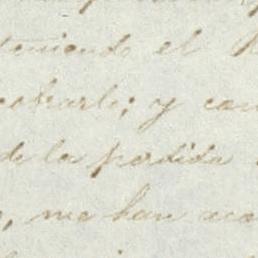 teniendo el
cobrarle; y con
de la perdida
me han aco